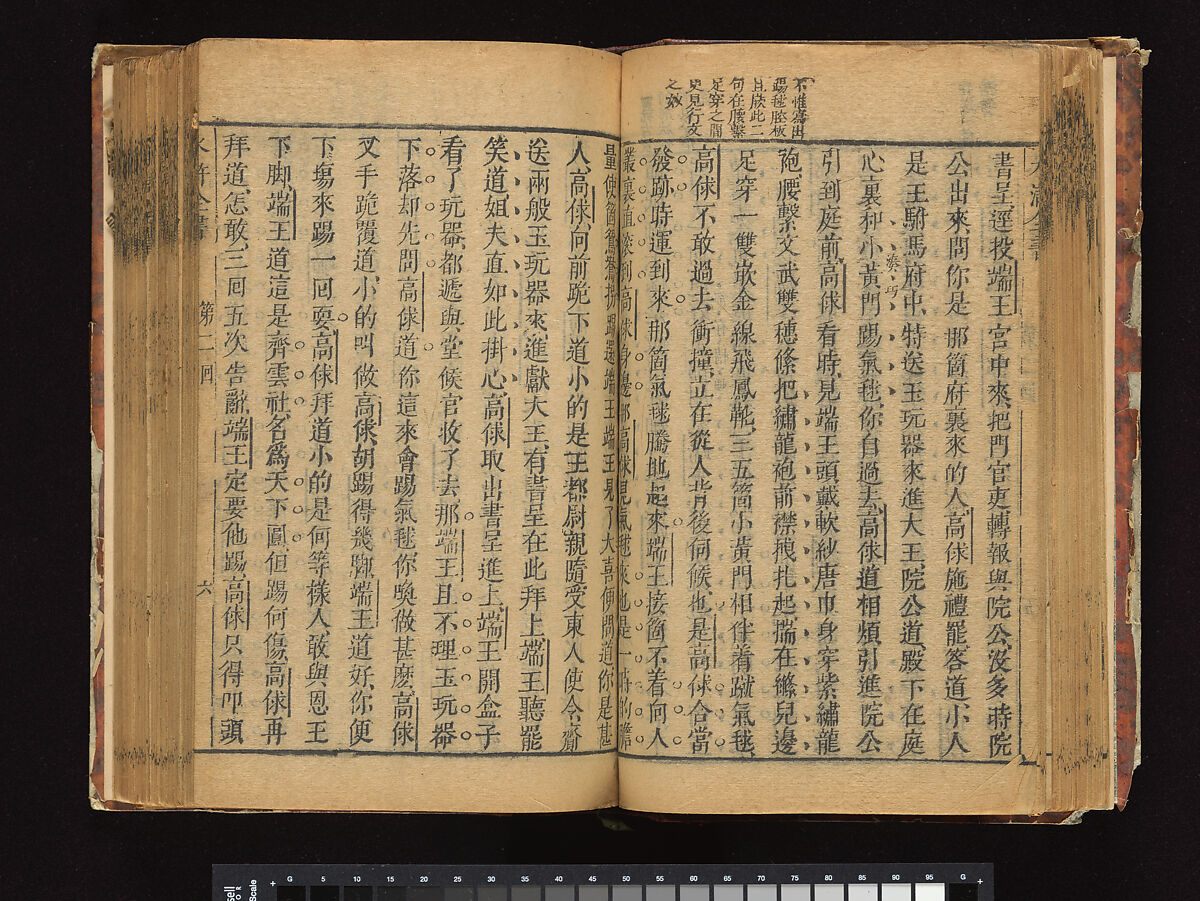 不惟寫出
踢毬腔板
且歲此二
句在腰繫
足穿之間
更見行文
之效
書呈逕投端王宮中來把門官吏轉報與院公沒多時院
公出來問你是那箇府裏來的人高俅施禮罷答道小人
是王駙馬府中特送玉玩器來進大王院公道殿下在庭
湊巧
心裏和小黃門踢氣毬你自過去高俅道相煩引進院公
引到庭前高俅看時見端王頭戴軟紗唐巾身穿紫繡龍
袍腰繫文武雙穗絛把繡龍袍前襟拽扎起揣在絛兒邊
足穿一雙嵌金線飛鳳靴三五箇小黃門相伴着蹴氣毬
高俅不敢過去衝撞立在從人背後伺候也是高俅合當
發跡時運到來那箇氣毬騰地起來端王接箇不着向人
叢裏直滾到高俅身邊那高俅見氣毬來也是一時的膽
量使箇鴛鴦拐踢還端王端王見了大喜便問道你是甚
人高俅向前跪下道小的是王都尉親隨受東人使令齎
送兩般玉玩器來進獻大王有書呈在此拜上端王聽罷
笑道姐夫直如此掛心高俅取出書呈進上端王開盒子
看了玩器都遞與堂候官收了去那端王且不理玉玩器
下落却先問高俅道你這來會踢氣毬你喚做甚麽高俅
叉手跪覆道小的叫做高俅胡踢得幾脚端王道好你便
下塲來踢一回耍高俅拜道小的是何等樣人敢與恩王
下脚端王道這是齊雲社名爲天下圓但踢何傷高俅再
拜道怎敢三回五次告辭端王定要他踢高俅只得叩頭
水滸全書 第二回 六
G 5 10 15 20 25 30 35 40 45 50 55 60 65 70 75 80 85 90 95 G
Scale